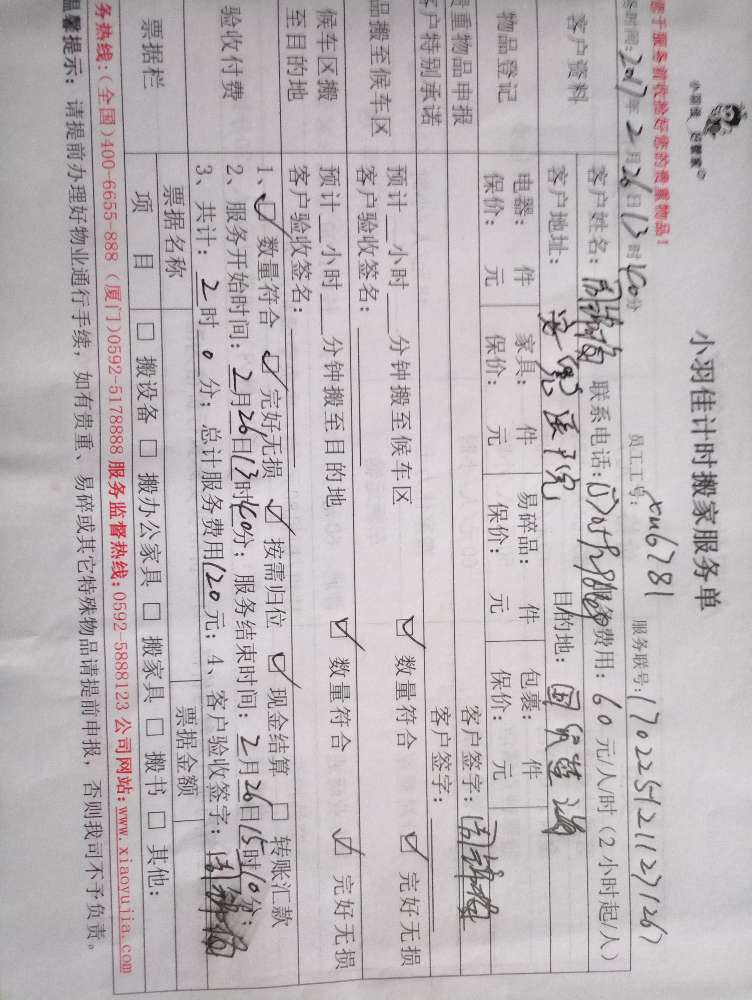 小羽佳计时搬家服务单
员工工号: xm6781 服务联号:
时间: 2017年2月26日13时40分
您于服务前收拾好您的贵重物品!
小羽佳
客户资料
客户姓名: 联系电话: 费用: 60元/人/时(2小时起/人)
客户地址: 目的地:
物品登记
电器: 件 家具: 件 易碎品: 件 包裹: 件
保价: 元 保价: 元 保价: 元 保价: 元
贵重物品申报
客户签字:
客户特别承诺
客户签字:
品搬至候车区
预计 小时 分钟搬至候车区 ☑ 数量符合 ☑ 完好无损
客户验收签名:
候车区搬至目的地
预计 小时 分钟搬至目的地 ☑ 数量符合 ☑ 完好无损
客户验收签名:
验收付费
1、☑ 数量符合 ☑ 完好无损 ☑ 按需归位 ☑ 现金结算 □ 转账汇款
2、服务开始时间: 2月26日13时40分; 服务结束时间: 2月26日15时10分;
3、共计: 2时0分; 总计服务费用120元; 4、客户验收签字:
票据栏
票据名称 票据金额
项目 □ 搬设备 □ 搬办公家具 □ 搬家具 □ 搬书 □ 其他:
务热线:(全国)400-6655-888 (厦门)0592-5178888 服务监督热线:0592-5888123 公司网站:www.xiaoyujia.com
温馨提示: 请提前办理好物业通行手续, 如有贵重、易碎或其它特殊物品请提前申报, 否则我司不予负责。